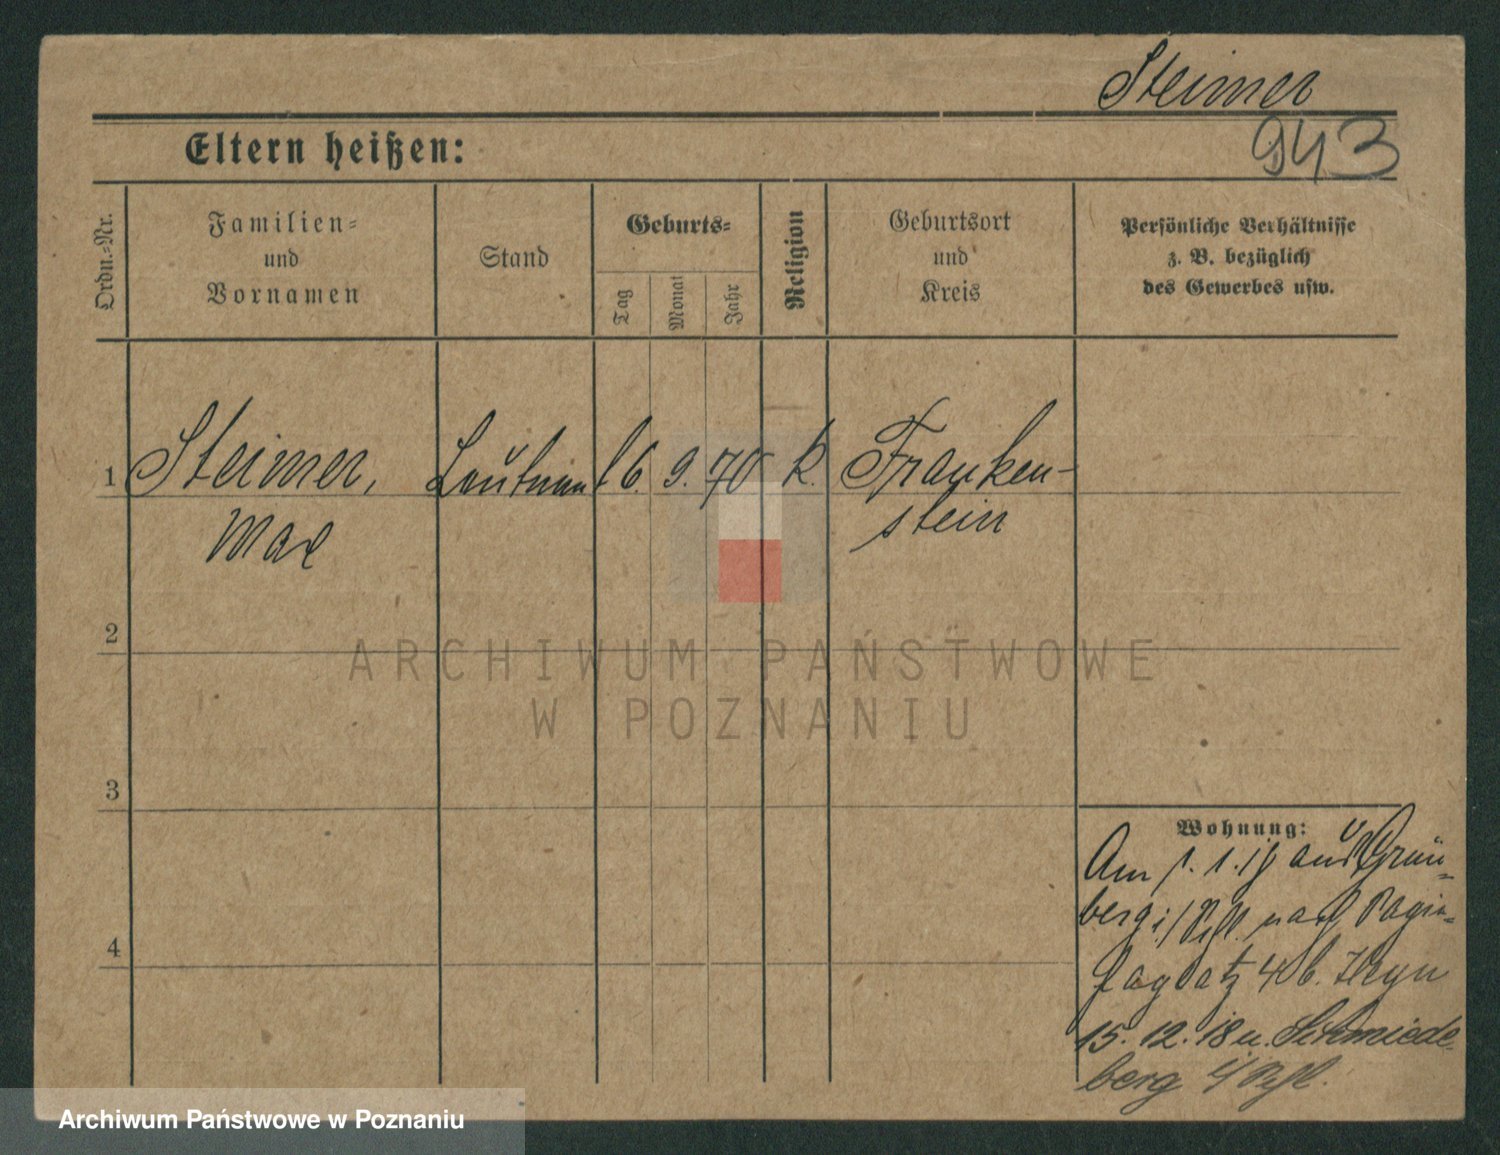 Steimer
943
Eltern heißen:
Ordn.-Nr.
Familien-
und
Vornamen
Stand
Geburts-
Tag
Monat
Jahr
Religion
Geburtsort
und
Kreis
Persönliche Verhältnisse
z. B. bezüglich
des Gewerbes usw.
1 Steimer, Leutnan 16. 9. 70 k. Franken-
Max stein
2
3
4
ARCHIWUM PAŃSTWOWE
W POZNANIU
Wohnung:
Am 1. 1. aus Grün-
berg i/Schl. nach
platz 4 b. Heyn
15. 12. 18 n. Schmiede-
berg i/
Archiwum Państwowe w Poznaniu